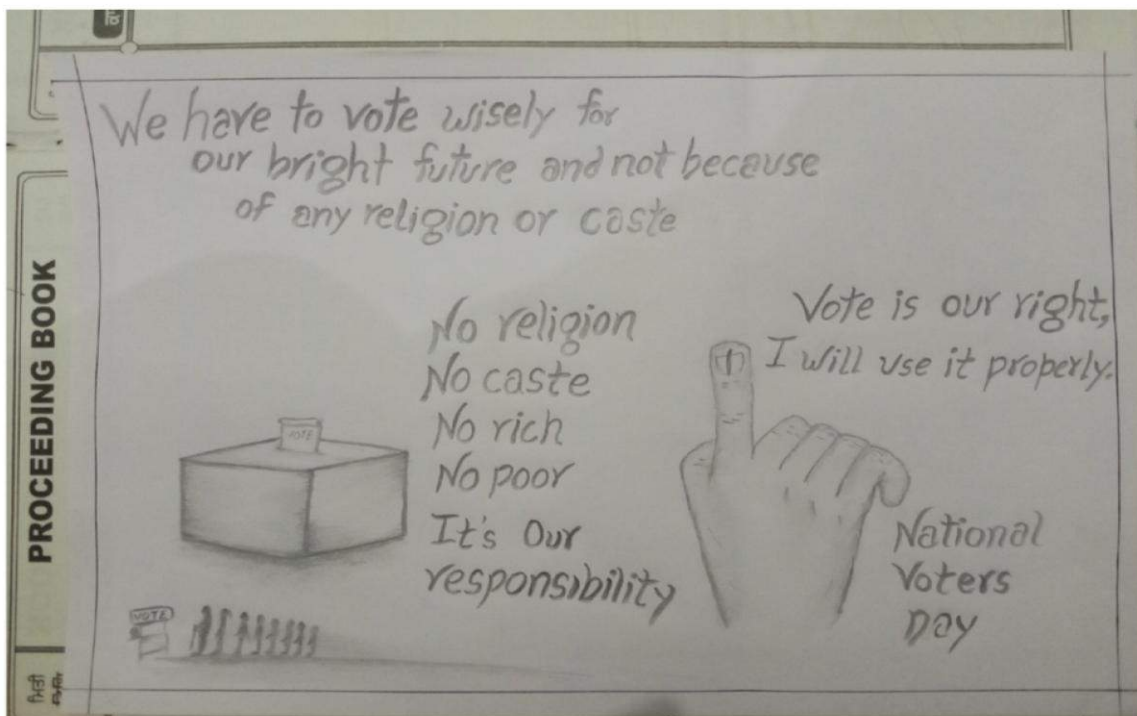 We have to vote wisely for
our bright future and not because
of any religion or caste
No religion
No caste
No rich
No poor
It's Our
responsibility
Vote is our right,
I will use it properly.
National
Voters
Day
VOTE
VOTE
PROCEEDING BOOK
ਮਿਤੀ